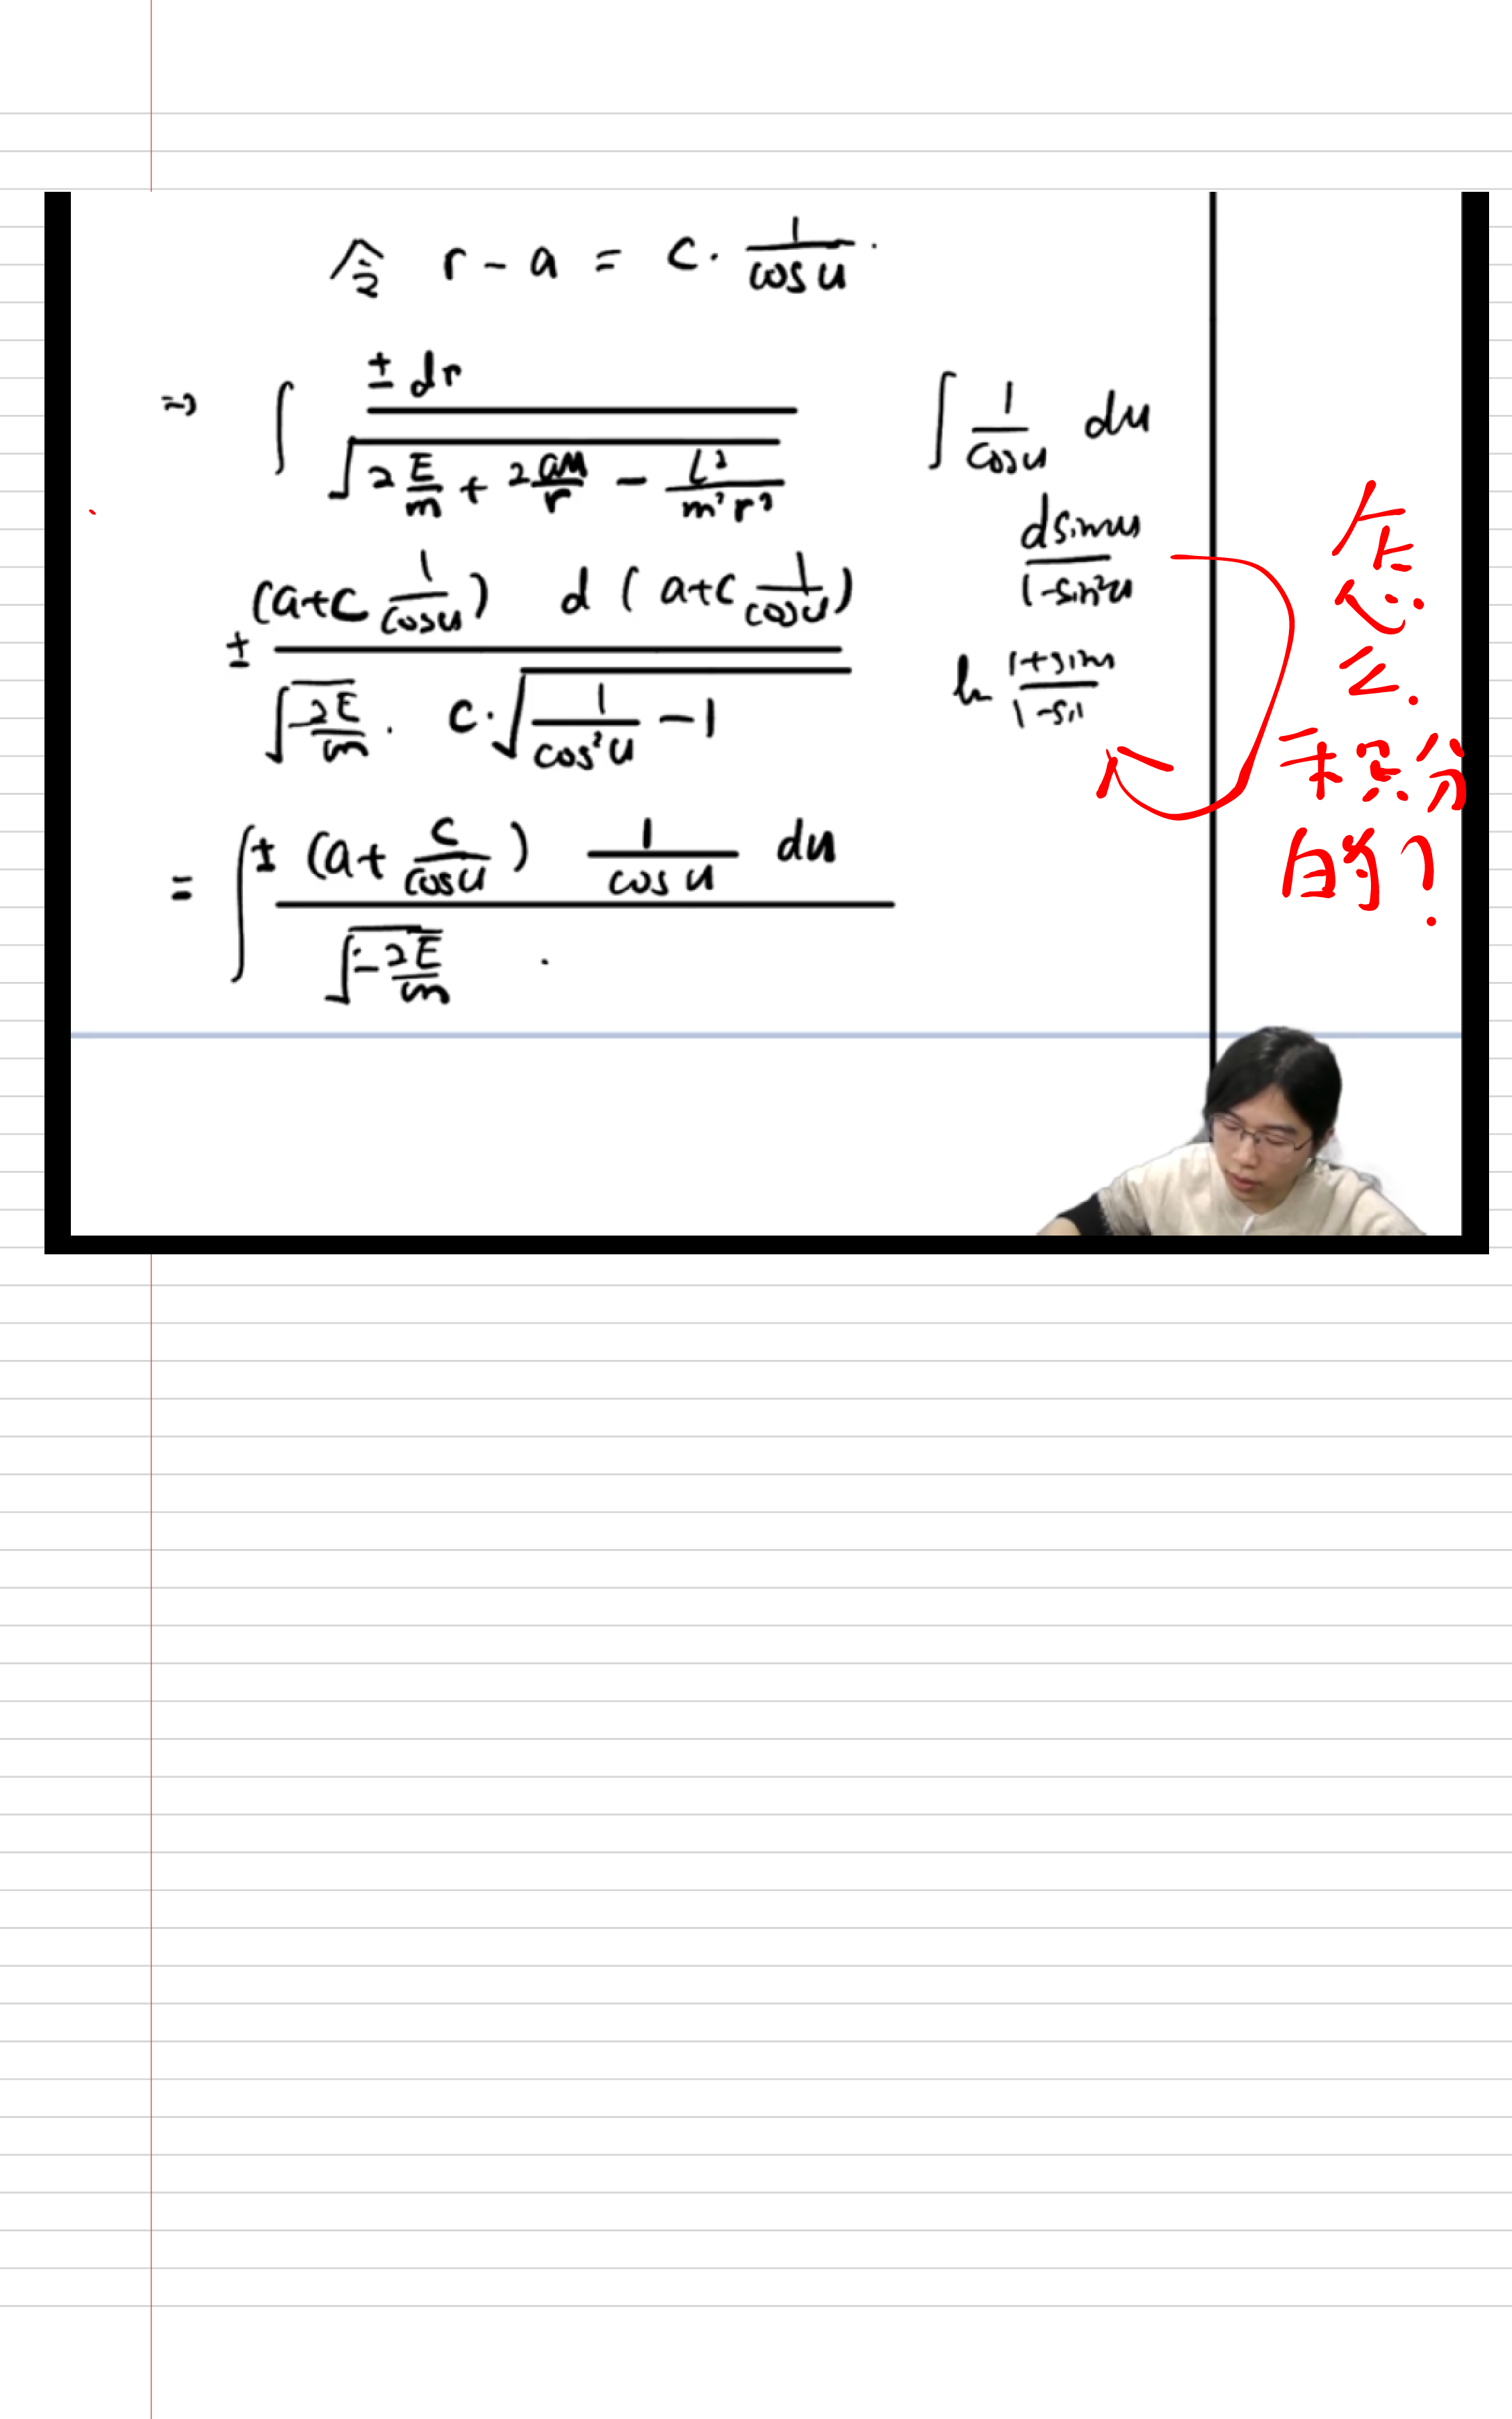 令 r - a = c · 1/cos u .
⇒ ∫ ± dr / √(2 E/m + 2 GM/r - L²/(m² r²))
± (a+c 1/cos u) d (a+c 1/cos u) / (√(2E/m) · c · √(1/cos² u - 1))
= ∫ ± (a + c/cos u) 1/cos u du / √(-2E/m) .
∫ 1/cos u du
d sin u / (1-sin² u)
ln (1+sin)/(1-sin)
怎
么
积分
的?